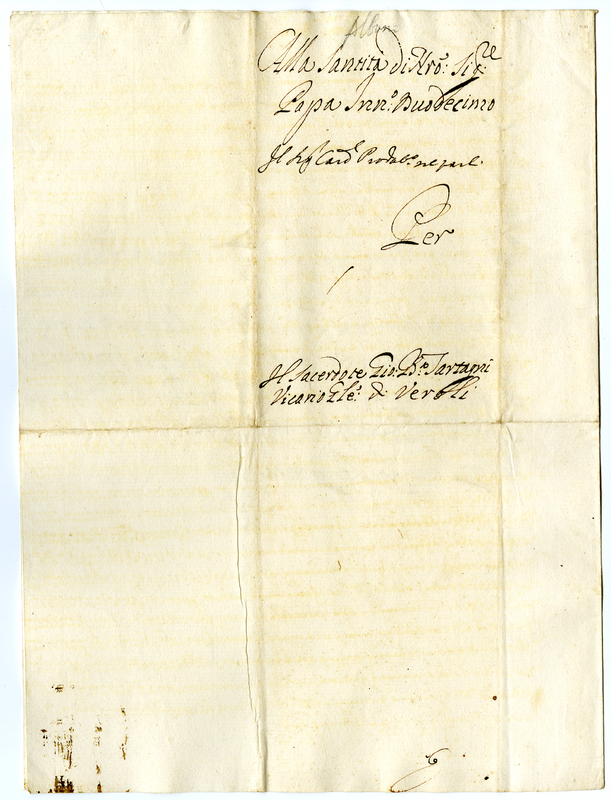 Alla Santità di Nrō: Sig:re
Papa Inn:o Duodecimo
Il Sig Card Prodat:o ne parli
Per
Il Sacerdote Gio: Bt:e Tartagni
Vicario Gle: di Veroli